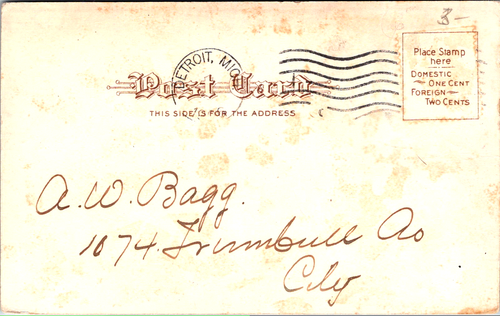 3-
DETROIT, MICH
Place Stamp
here
DOMESTIC
ONE CENT
FOREIGN
TWO CENTS
Post Card
THIS SIDE IS FOR THE ADDRESS
A. W. Bagg.
1074. Trumbull Av
City